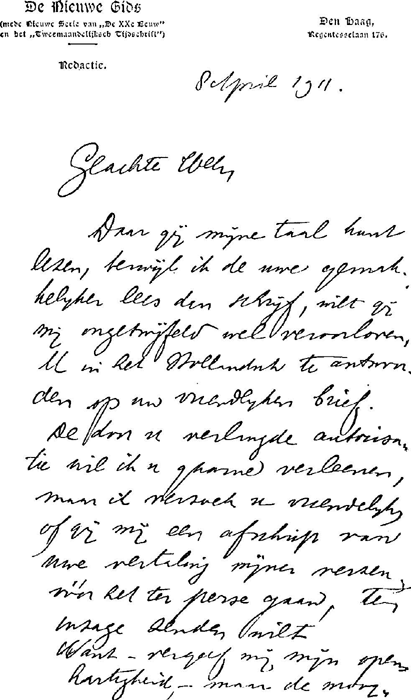 De Nieuwe Gids
(mede Nieuwe Serie van „De XXe Eeuw”
en het „Tweemaandelijksch Tijdschrift”)
Redactie.
Den Haag,
Regentesselaan 176.
8 April 1911.
Geachte
Daar gij mijne taal kunt
lezen, terwijl ik de uwe gemak-
kelyker lees dan schrijf, wilt gij
mij ongetwijfeld wel veroorloven,
U in het Hollandsch te antwoor-
den op uw vriendlyken brief.
De door u verlangde autorisa-
tie wil ik u gaarne verleenen,
maar ik verzoek u vriendelyk
of gij mij een afschrift van
uwe vertaling mijner verzen,
vóór het ter perse gaan, ter
inzage zenden wilt
Want – vergeef mij mijn open-
hartigheid, – maar de